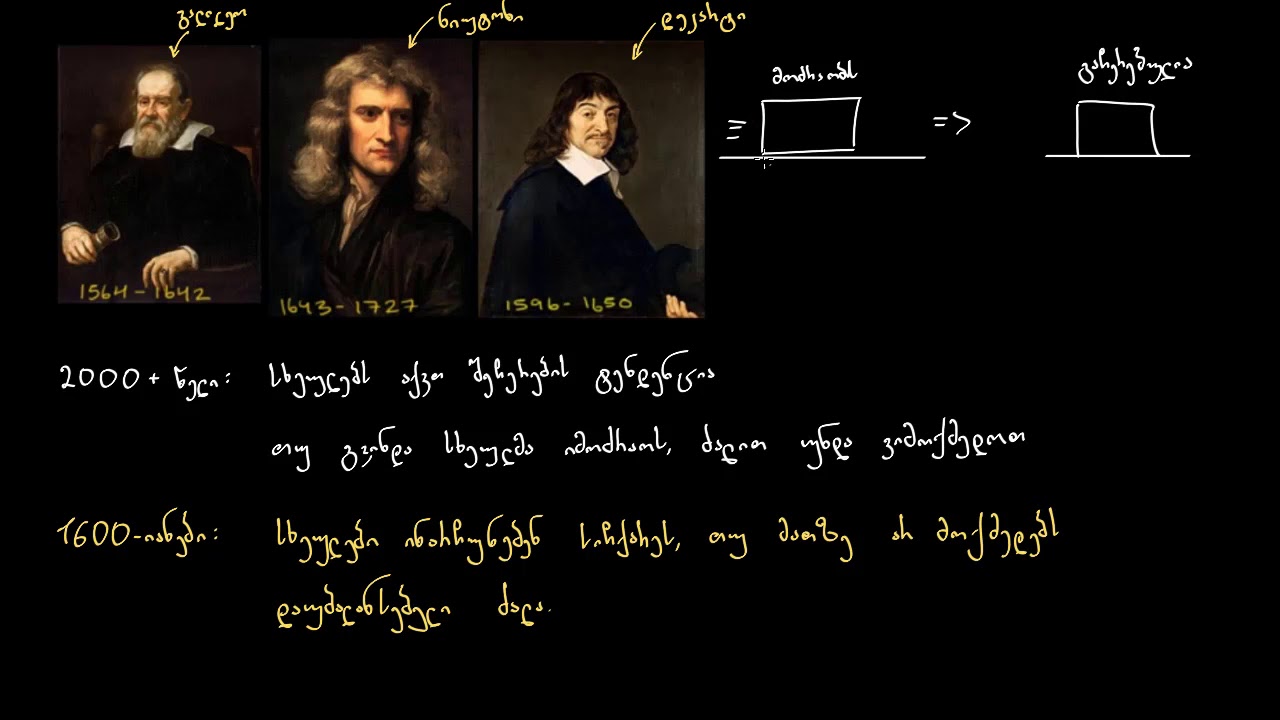 გალილეო
ნიუტონი
დეკარტი
მოძრაობს
გაჩერებულია
=>
1564 - 1642
1643 - 1727
1596 - 1650
2000+ წელი: სხეულებს აქვთ შეჩერების ტენდენცია
თუ გვინდა სხეულმა იმოძრაოს, ძალით უნდა ვიმოქმედოთ
1600-იანები: სხეულები ინარჩუნებენ სიჩქარეს, თუ მათზე არ მოქმედებს
დაუბალანსებელი ძალა.